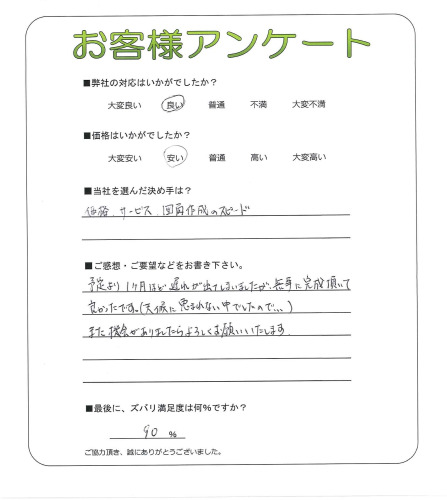 お客様アンケート
■弊社の対応はいかがでしたか？
大変良い 良い 普通 不満 大変不満
■価格はいかがでしたか？
大変安い 安い 普通 高い 大変高い
■当社を選んだ決め手は？
価格、サービス、図面作成のスピード
■ご感想・ご要望などをお書き下さい。
予定より1ヶ月ほど遅れが出てしまいましたが、無事に完成頂いて
良かったです。(天候に恵まれない中でしたので、、、)
また機会がありましたらよろしくお願いいたします。
■最後に、ズバリ満足度は何%ですか？
90 %
ご協力頂き、誠にありがとうございました。